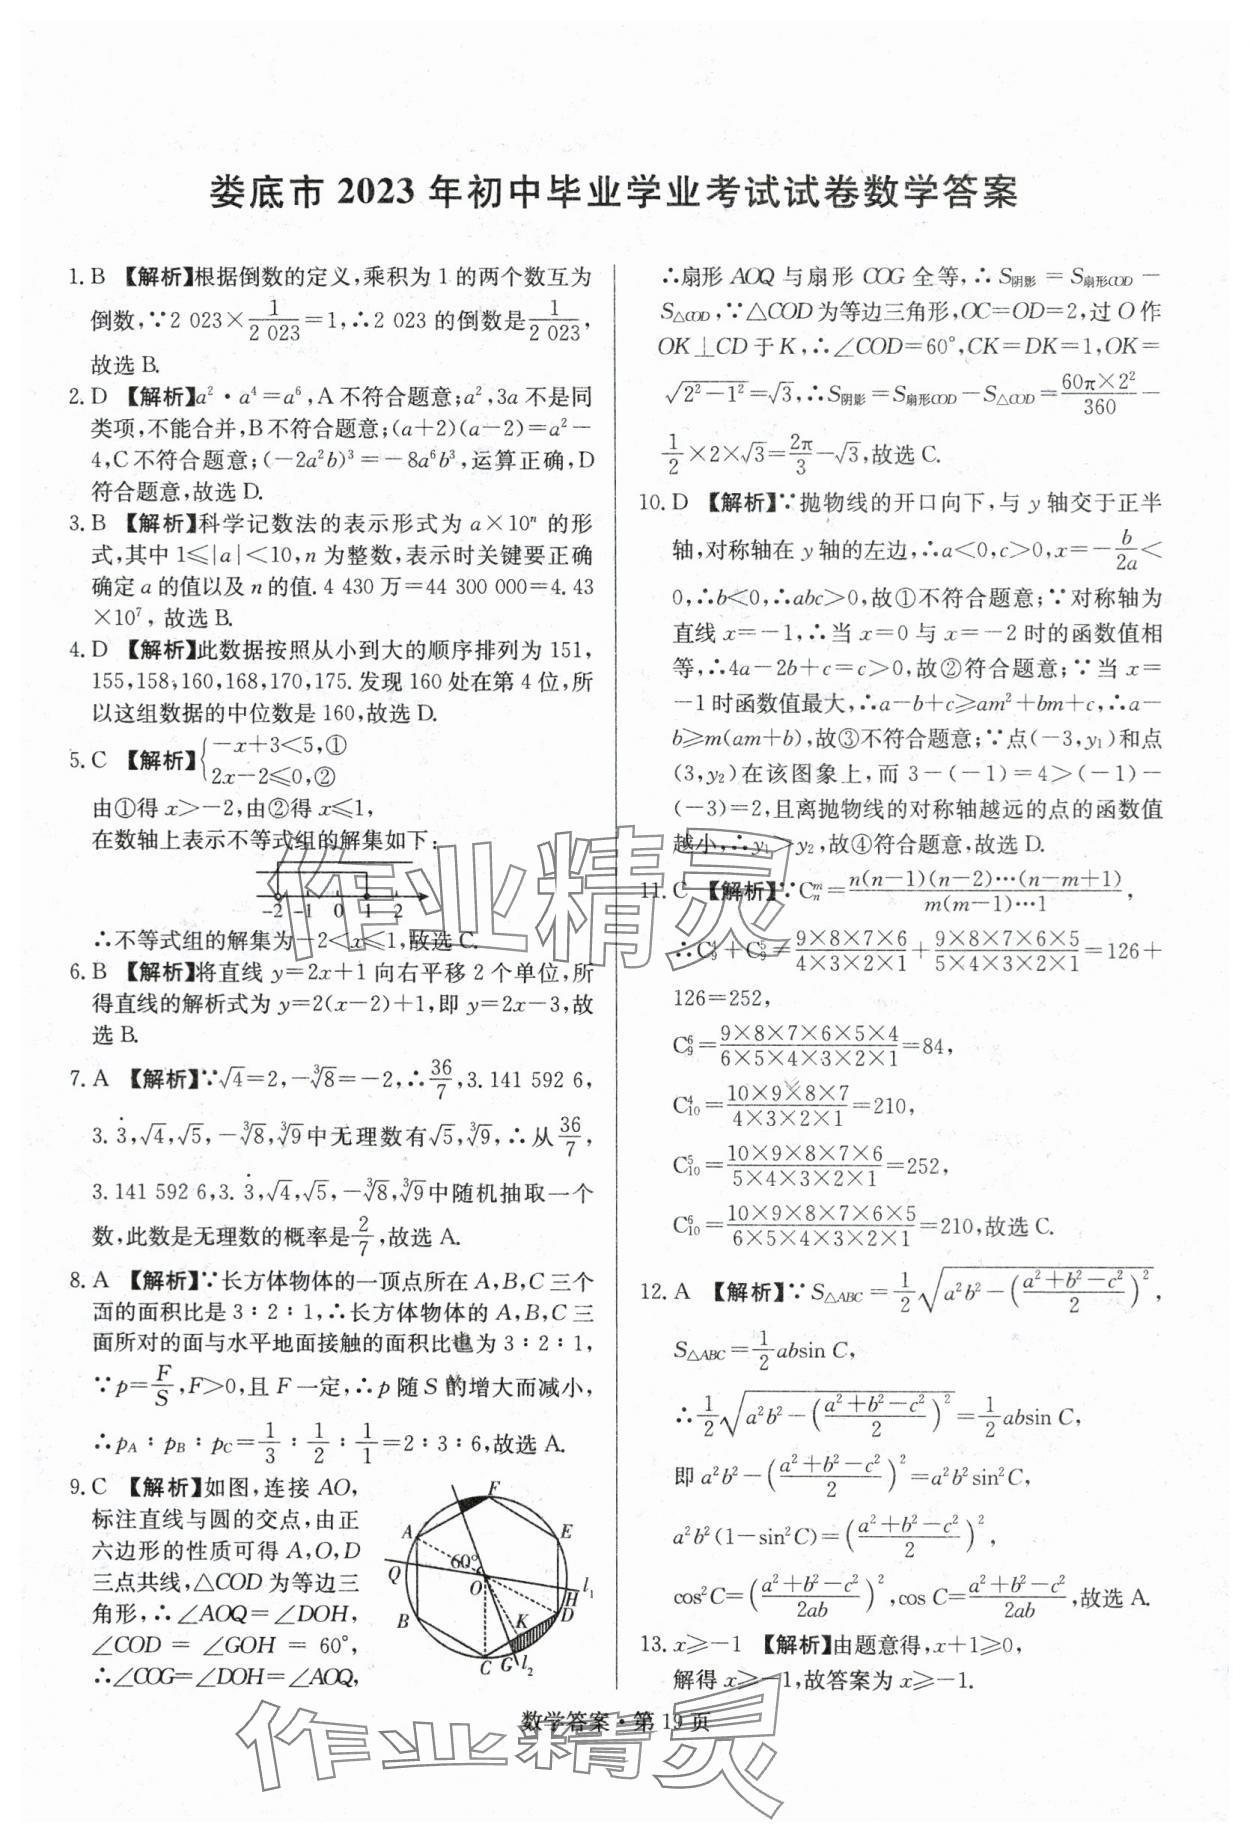 娄底市 2023 年初中毕业学业考试试卷数学答案
1. B 【解析】根据倒数的定义,乘积为 1 的两个数互为
倒数,∵2 023×1/2 023=1,∴2 023 的倒数是1/2 023,
故选 B.
2. D 【解析】a²·a⁴=a⁶,A 不符合题意;a²,3a 不是同
类项,不能合并,B 不符合题意;(a+2)(a-2)=a²-
4,C 不符合题意;(-2a²b)³=-8a⁶b³,运算正确,D
符合题意,故选 D.
3. B 【解析】科学记数法的表示形式为 a×10ⁿ 的形
式,其中 1≤|a|<10,n 为整数,表示时关键要正确
确定 a 的值以及 n 的值. 4 430 万=44 300 000=4.43
×10⁷,故选 B.
4. D 【解析】此数据按照从小到大的顺序排列为 151,
155,158,160,168,170,175. 发现 160 处在第 4 位,所
以这组数据的中位数是 160,故选 D.
5. C 【解析】{-x+3<5,①
2x-2≤0,②
由①得 x>-2,由②得 x≤1,
在数轴上表示不等式组的解集如下:
-2 -1 0 1 2
∴不等式组的解集为-2<x≤1,故选 C.
6. B 【解析】将直线 y=2x+1 向右平移 2 个单位,所
得直线的解析式为 y=2(x-2)+1,即 y=2x-3,故
选 B.
7. A 【解析】∵√4=2,-³√8=-2,∴36/7,3.141 592 6,
3.3̇,√4,√5,-³√8,³√9中无理数有√5,³√9,∴从36/7,
3.141 592 6,3.3̇,√4,√5,-³√8,³√9中随机抽取一个
数,此数是无理数的概率是2/7,故选 A.
8. A 【解析】∵长方体物体的一顶点所在 A,B,C 三个
面的面积比是 3∶2∶1,∴长方体物体的 A,B,C 三
面所对的面与水平地面接触的面积比也为 3∶2∶1,
∵p=F/S,F>0,且 F 一定,∴p 随 S 的增大而减小,
∴p_A∶p_B∶p_C=1/3∶1/2∶1/1=2∶3∶6,故选 A.
9. C 【解析】如图,连接 AO,
标注直线与圆的交点,由正
六边形的性质可得 A,O,D
三点共线,△COD 为等边三
角形,∴∠AOQ=∠DOH,
∠COD = ∠GOH = 60°,
∴∠COG=∠DOH=∠AOQ,
F
A
E
60°
Q
O
H
l₁
B
K
D
C
G
l₂
∴扇形 AOQ 与扇形 COG 全等,∴S阴影=S扇形COD-
S△COD,∵△COD 为等边三角形,OC=OD=2,过 O 作
OK⊥CD 于 K,∴∠COD=60°,CK=DK=1,OK=
√(2²-1²)=√3,∴S阴影=S扇形COD-S△COD=(60π×2²)/360-
1/2×2×√3=2π/3-√3,故选 C.
10. D 【解析】∵抛物线的开口向下,与 y 轴交于正半
轴,对称轴在 y 轴的左边,∴a<0,c>0,x=-b/2a<
0,∴b<0,∴abc>0,故①不符合题意;∵对称轴为
直线 x=-1,∴当 x=0 与 x=-2 时的函数值相
等,∴4a-2b+c=c>0,故②符合题意;∵当 x=
-1 时函数值最大,∴a-b+c≥am²+bm+c,∴a-
b≥m(am+b),故③不符合题意;∵点(-3,y₁)和点
(3,y₂)在该图象上,而 3-(-1)=4>(-1)-
(-3)=2,且离抛物线的对称轴越远的点的函数值
越小,∴y₁>y₂,故④符合题意,故选 D.
11. C 【解析】∵Cₙᵐ=n(n-1)(n-2)…(n-m+1)/m(m-1)…1,
∴C₉⁴+C₉⁵=(9×8×7×6)/(4×3×2×1)+(9×8×7×6×5)/(5×4×3×2×1)=126+
126=252,
C₉⁶=(9×8×7×6×5×4)/(6×5×4×3×2×1)=84,
C₁₀⁴=(10×9×8×7)/(4×3×2×1)=210,
C₁₀⁵=(10×9×8×7×6)/(5×4×3×2×1)=252,
C₁₀⁶=(10×9×8×7×6×5)/(6×5×4×3×2×1)=210,故选 C.
12. A 【解析】∵S△ABC=1/2√(a²b²-((a²+b²-c²)/2)²),
S△ABC=1/2absin C,
∴1/2√(a²b²-((a²+b²-c²)/2)²)=1/2absin C,
即 a²b²-((a²+b²-c²)/2)²=a²b²sin²C,
a²b²(1-sin²C)=((a²+b²-c²)/2)²,
cos²C=((a²+b²-c²)/2ab)²,cos C=(a²+b²-c²)/2ab,故选 A.
13. x≥-1 【解析】由题意得,x+1≥0,
解得 x≥-1,故答案为 x≥-1.
数学答案·第 19 页
作业精灵
作业精灵